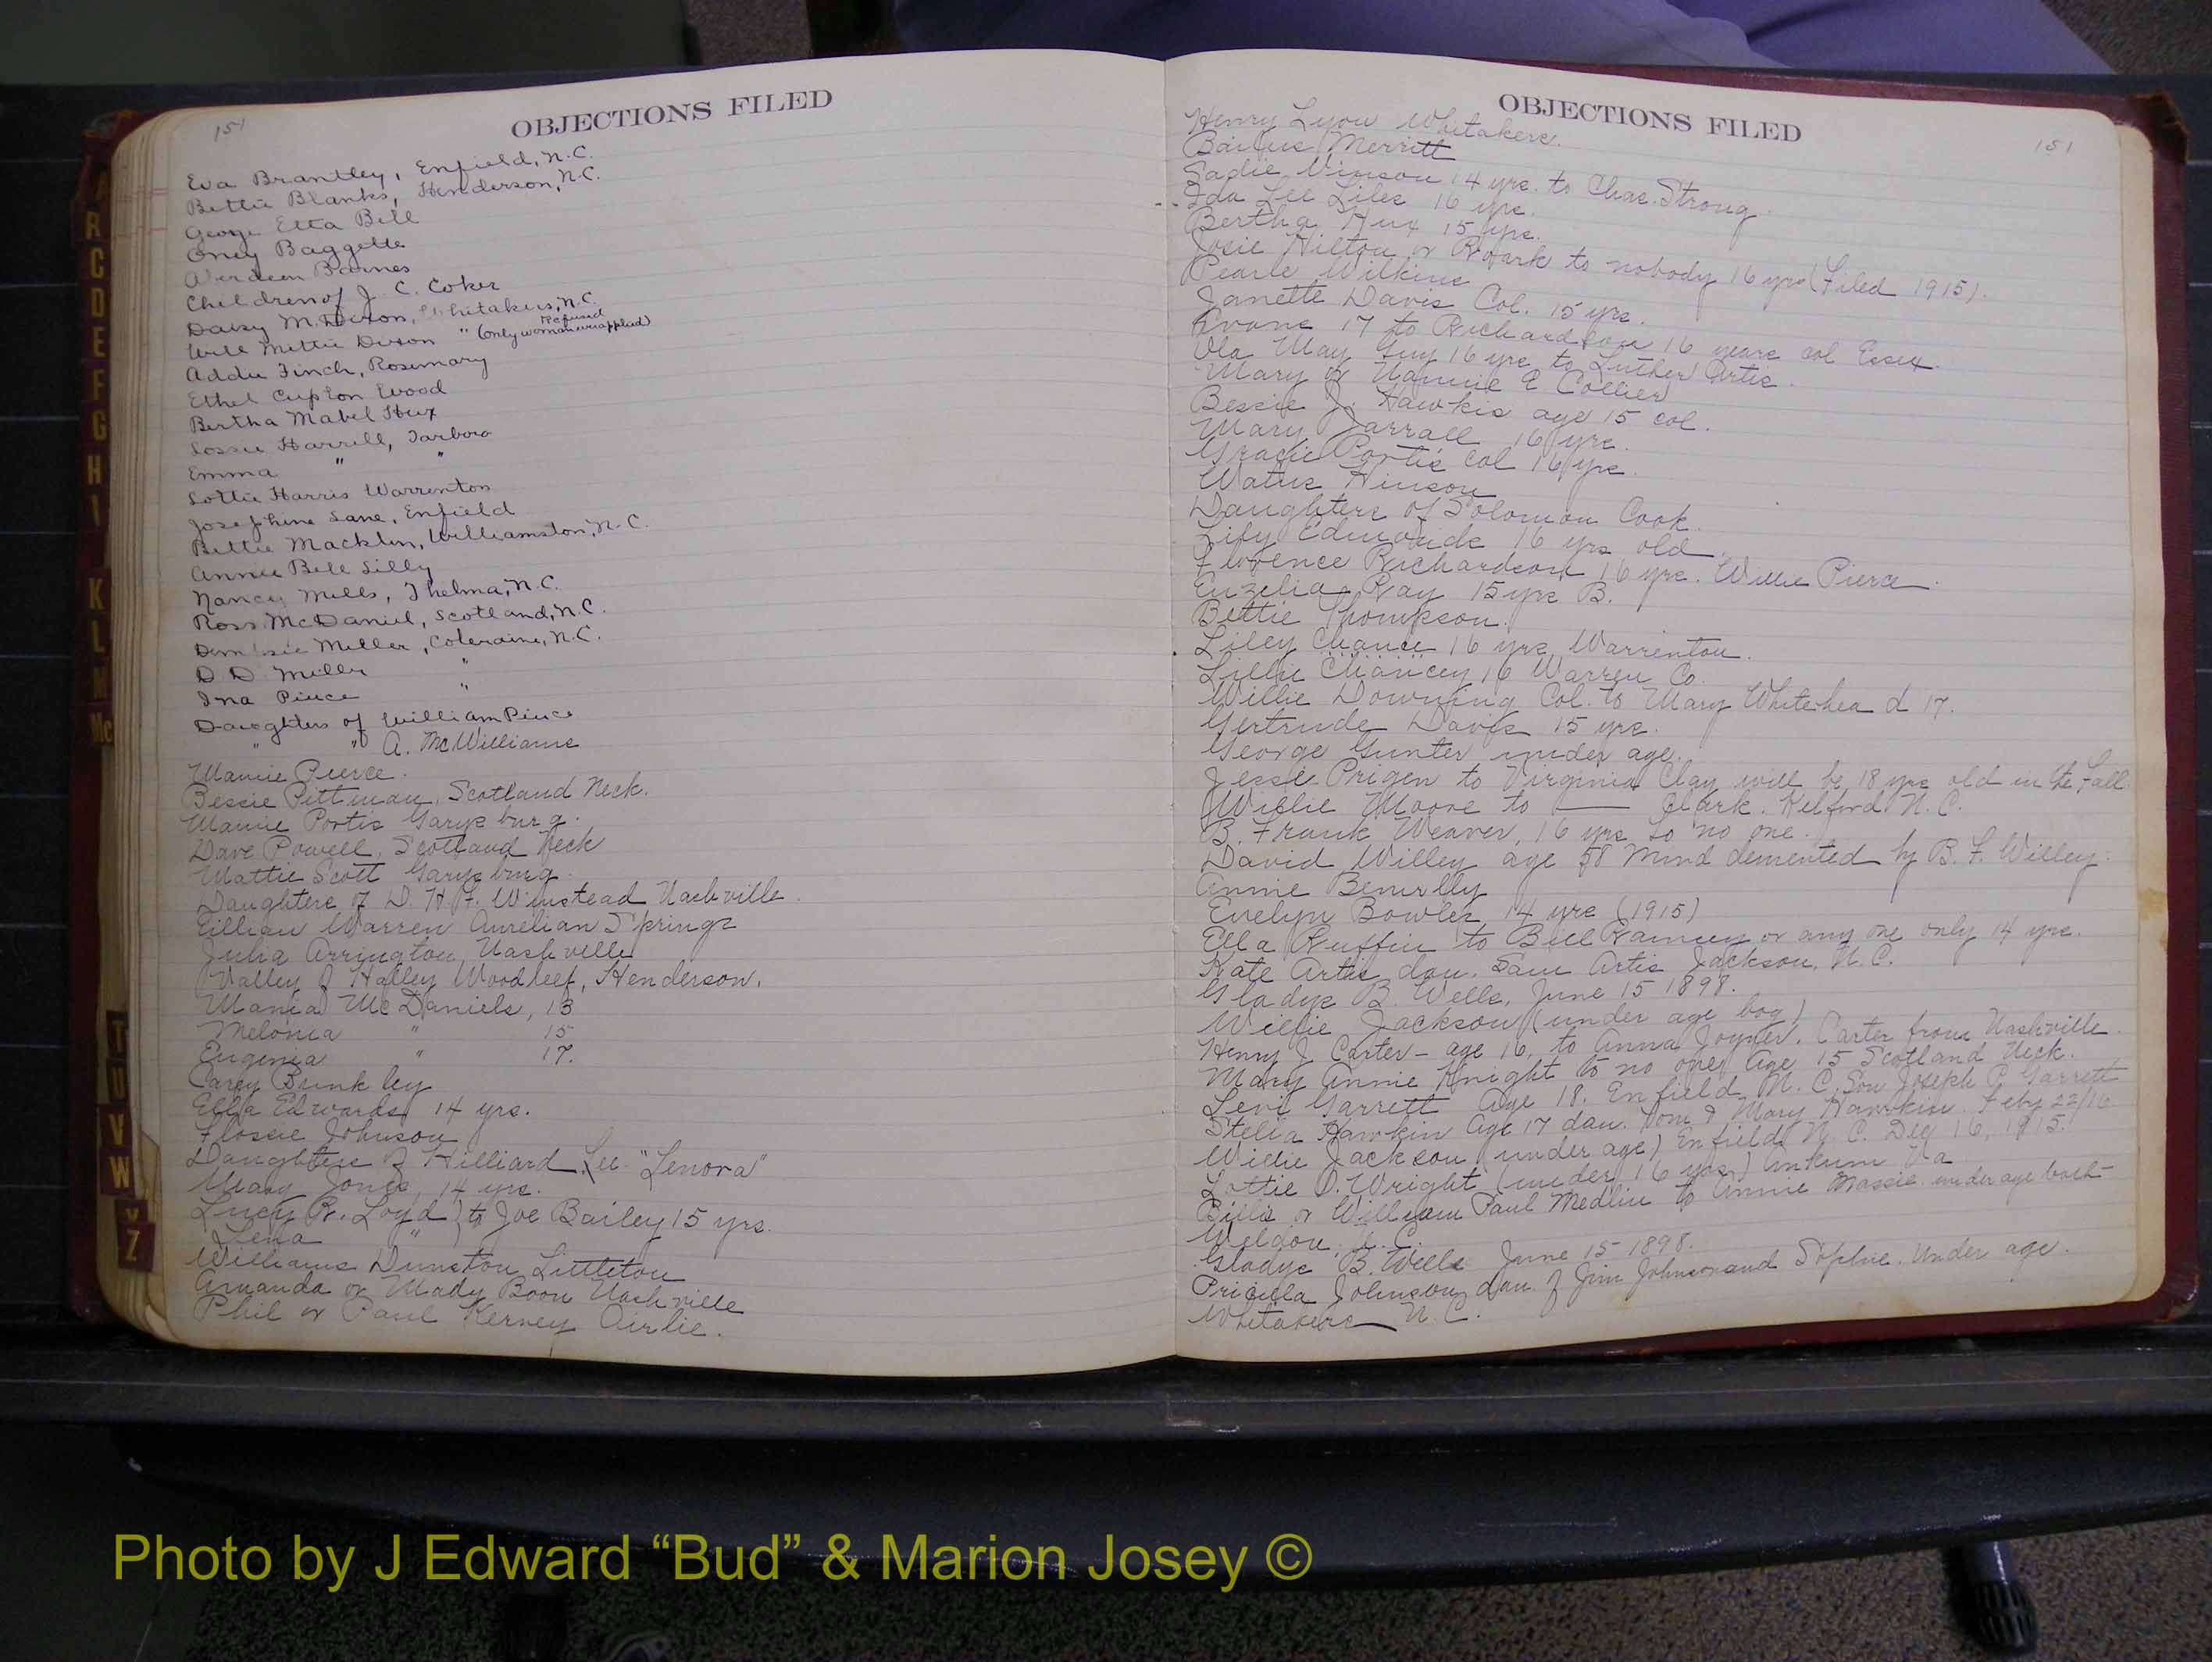 151
OBJECTIONS FILED
Eva Brantley, Enfield, N.C.
Bettie Blanks, Henderson, N.C.
George Etta Bell
Oney Baggette
Aberdeen Barnes
Children of J. C. Coker
Daisy M. Dixon, Whitakers, N.C.
Will Mittie Dixon " (only woman refused applied)
Addie Finch, Rosemary
Ethel Cupton Wood
Bertha Mabel Hux
Lossie Harrell, Tarboro
Emma " "
Lottie Harris Warrenton
Josephine Lane, Enfield
Bettie Macklin, Williamston, N.C.
Annie Bell Lilly
Nancy Mills, Thelma, N.C.
Ross McDaniel, Scotland, N.C.
Miller, Coleraine, N.C.
D D Miller "
Ina Pierce "
Daughters of William Pierce
" " A. McWilliams
Mamie Pierce.
Bessie Pittman, Scotland Neck.
Mamie Portis Garysburg.
Dave Powell, Scotland Neck
Mattie Scott Garysburg.
Daughters of D. H. H. Winstead Nashville.
Lillian Warren Aurelian Springs
Julia Arrington, Nashville
Valley or Halley Woodleef, Henderson.
Mania McDaniels, 13
Melonia " 15
Eugenia " 17.
Carey Brinkley
Ella Edwards 14 yrs.
Flossie Johnson
Daughters of Hilliard Lee "Lenora"
Mary Jones, 14 yrs.
Lucy R. Loyd } to Joe Bailey 15 yrs.
Lena "
Williams Dunston Littleton
Amanda or Mady Boon Nashville
Phil or Paul Kerney Airlie.
OBJECTIONS FILED
151
Henry Lyon Whitakers.
Merritt
Sadie Vinson 14 yrs. to Chas. Strong.
Ida Lee Liles 16 yrs.
Bertha Hux 15 yrs.
Josie Hilton or Roark to nobody 16 yrs (Filed 1915).
Pearle Wilkins
Janette Davis Col. 15 yrs.
Evans 17 to Richardson 16 years col Essex.
Ola May Guy 16 yrs to Luther Artis.
Mary or Nannie E Collier
Bessie J. Hawkis age 15 col.
Mary Jarrall 16 yrs.
Gracie Portis col 16 yrs.
Hinson
Daughters of Solomon Cook.
Edmonds 16 yrs old.
Florence Richardson 16 yrs. Willie Pierce.
Euzelia Ray 15 yrs B.
Bettie Thompson.
Liley Chance 16 yrs Warrenton.
Lillie Chancey 16 Warren Co.
Willie Downing Col. to Mary Whitehead 17.
Gertrude Davis 15 yrs.
George Gunter under age.
Jesse Prigen to Virginia Clay will be 18 yrs old in the Fall
Willie Moore to —— Clark. Kelford N. C.
B. Frank Weaver, 16 yrs to no one.
David Willey age 58 mind demented by B. F. Willey.
Annie
Evelyn Bowles 14 yrs (1915)
Ella Ruffin to Bill Ramsey or any one only 14 yrs.
Kate Artis dau. Sam Artis Jackson, N.C.
Gladys B. Wells, June 15 1898.
Willie Jackson (under age boy)
Henry J. Carter – age 16, to Anna Joyner. Carter from Nashville.
Mary Annie Knight to no one, Age 15 Scotland Neck.
Levi Garrett Age 18. Enfield N. C. Son Joseph P. Garrett
Stella Hawkin Age 17 dau. Tom & Mary Hawkin. Feby 22/16
Willie Jackson (under age) Enfield N. C. Dec 16, 1915.
Lottie D. Wright (under 16 yrs) Va
Billie or William Paul Medlin to Annie Massie under age both
Weldon, N. C.
Gladys B. Wells June 15 1898.
Pricilla Johnson dau. of Jim Johnson and Sophie. Under age.
Whitakers N. C.
A
R
C
D
E
F
G
H
I
K
L
M
Mc
T
U
V
W
Y
Z
Photo by J Edward “Bud” & Marion Josey ©